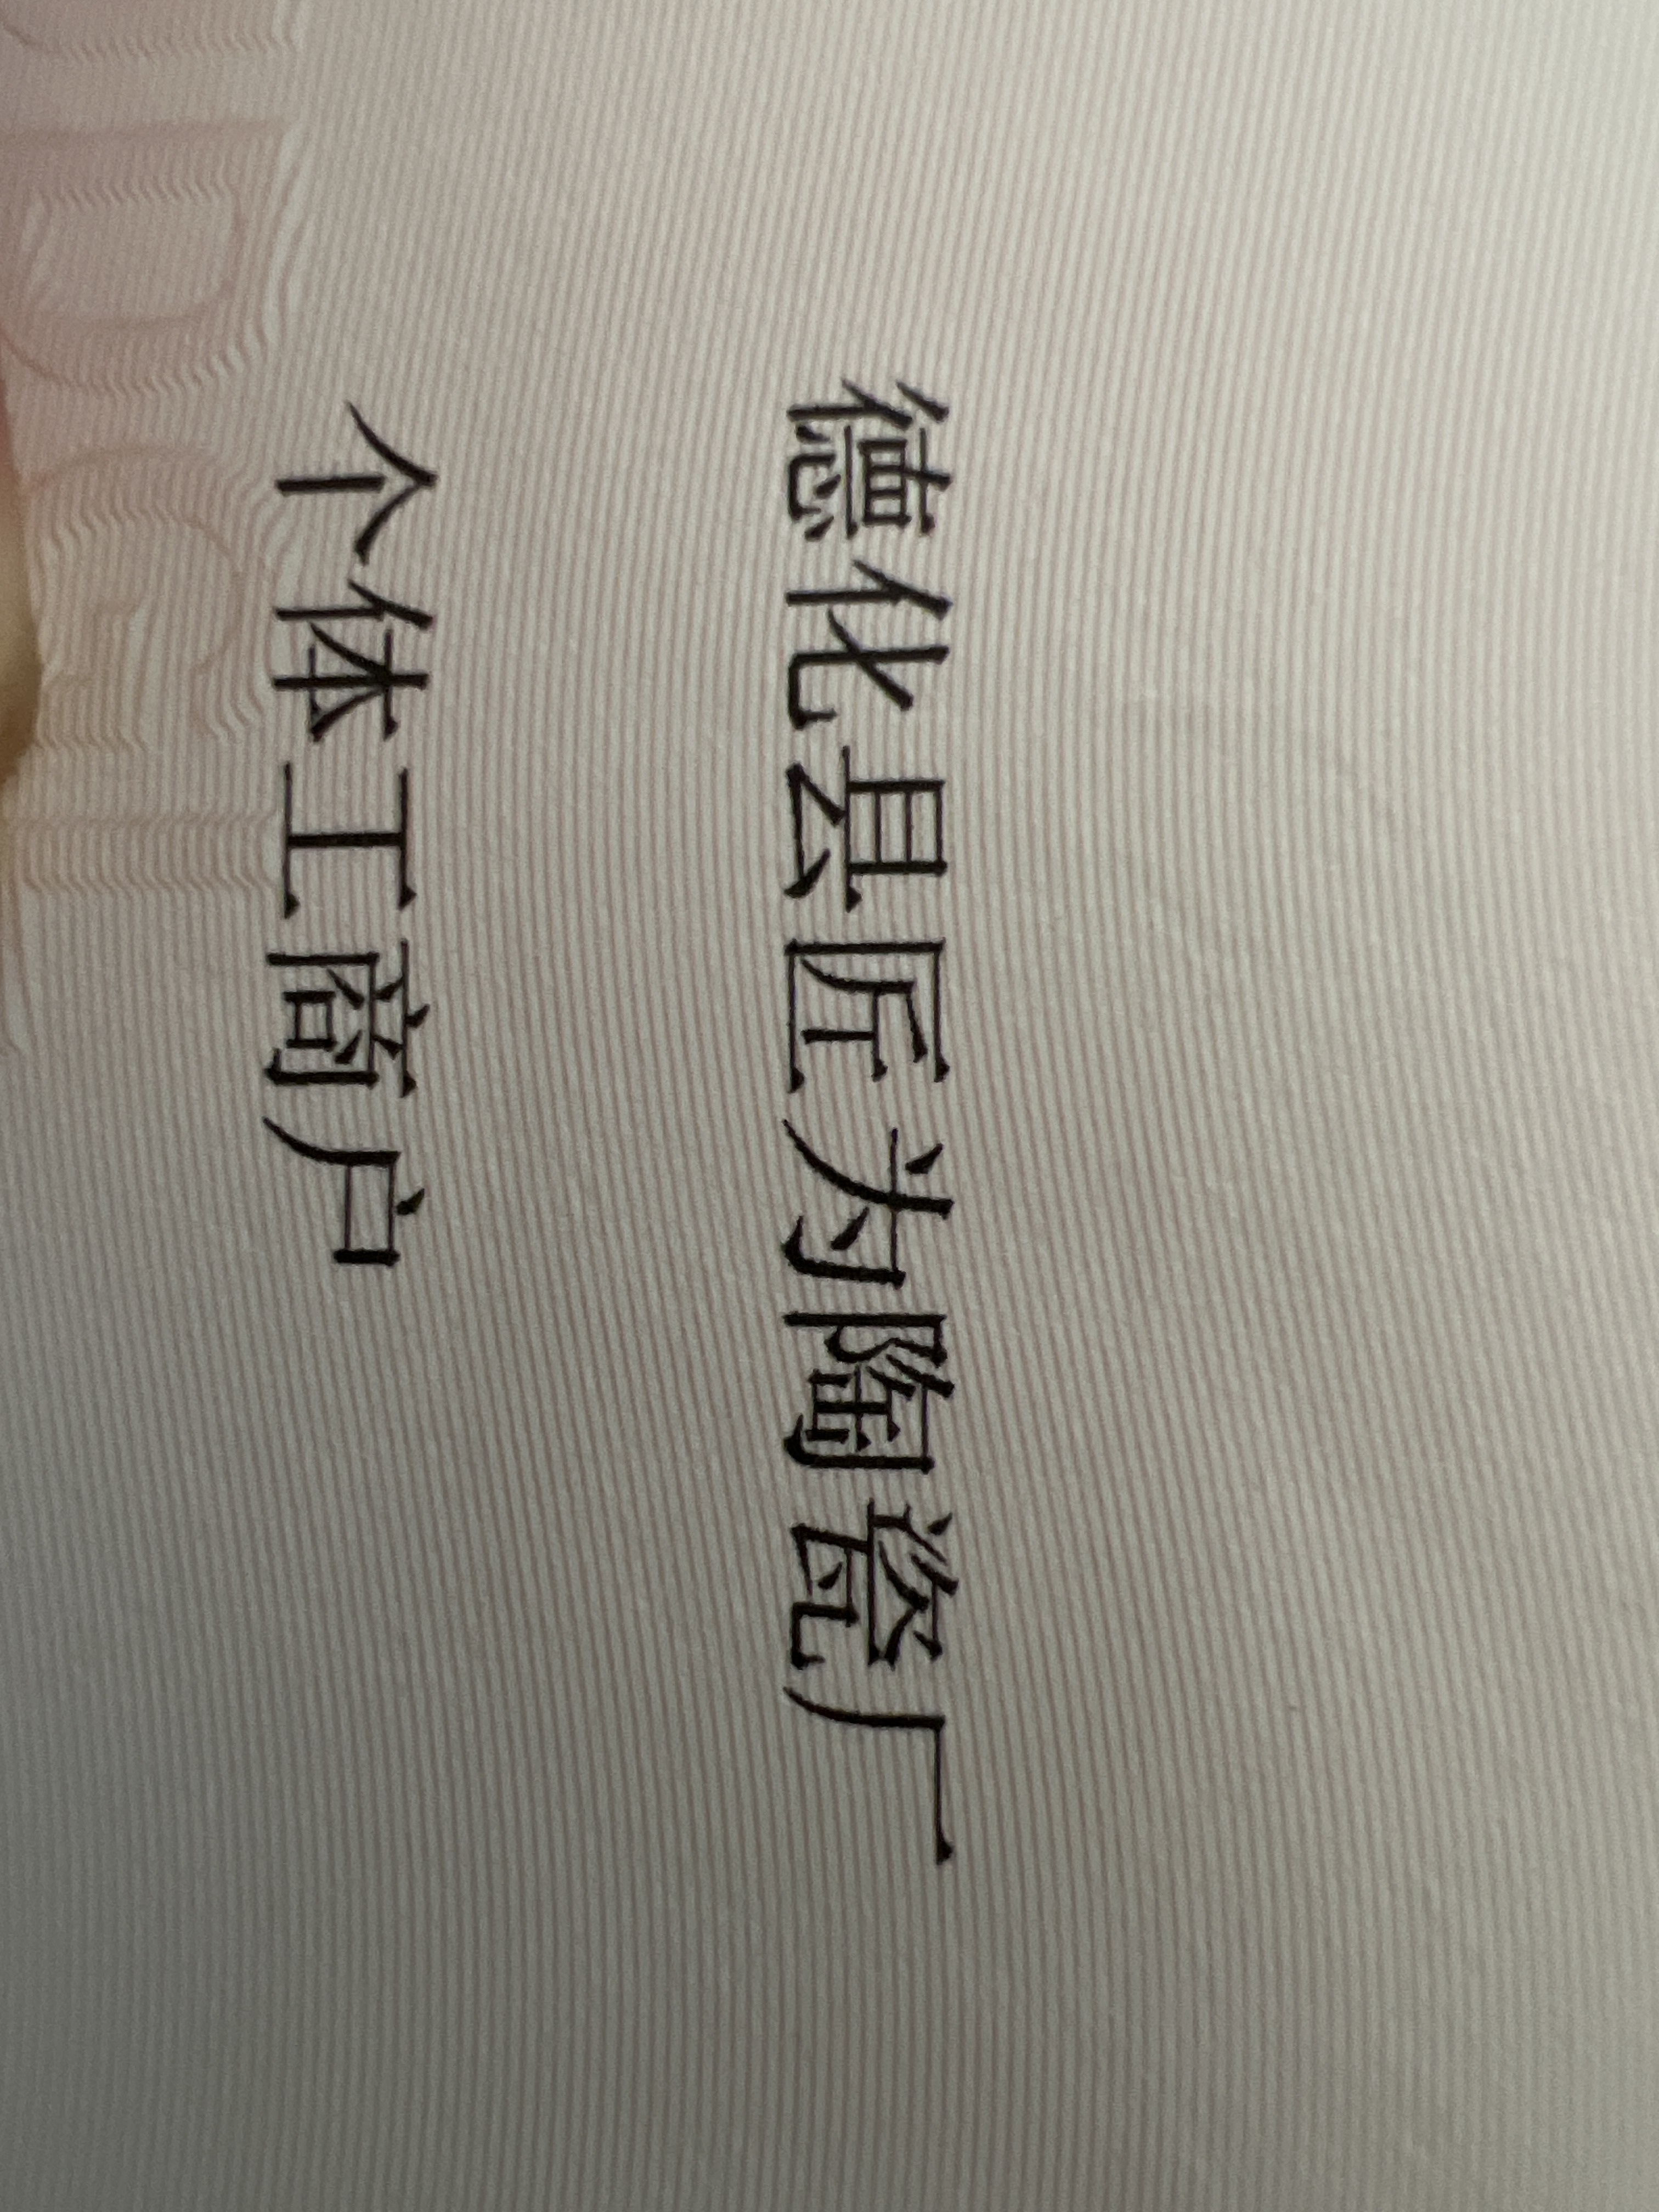 德化县匠为陶瓷厂
个体工商户